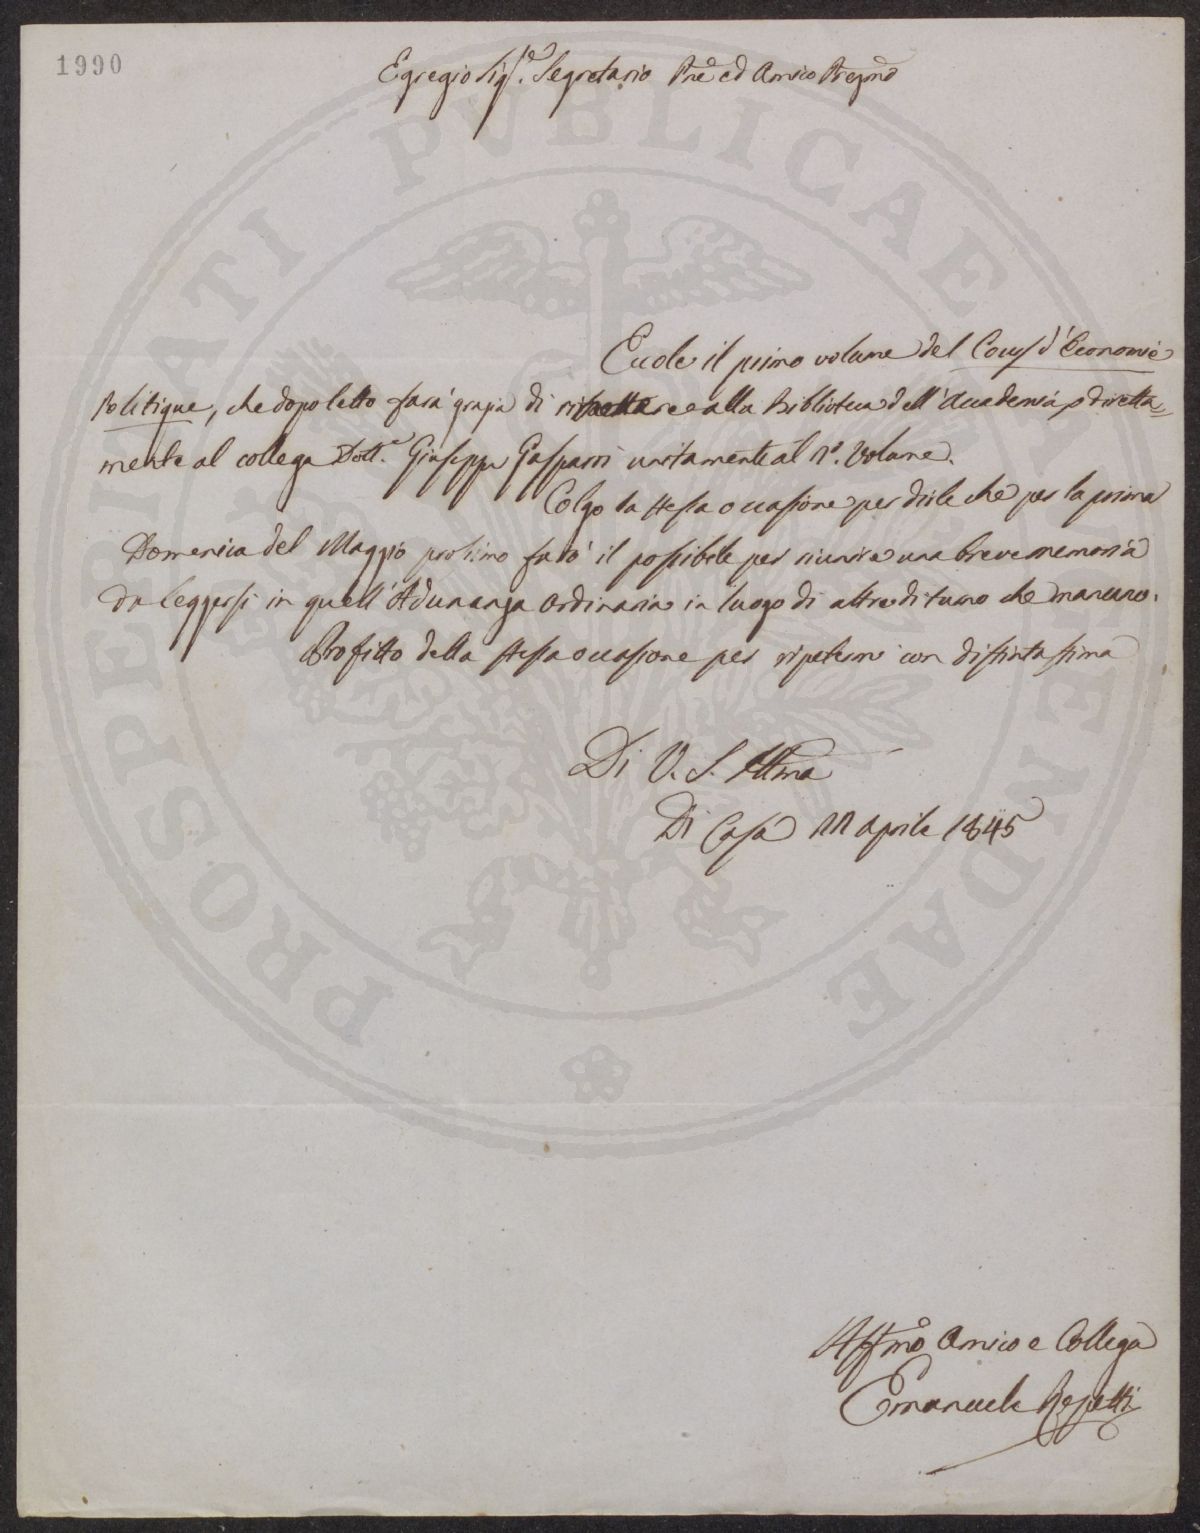 1990
Egregio Sig.re Segretario Pne ed Amico Pregmo
PROSPERITATI PUBLICAE AUGENDAE
Eccole il primo volume del Cours d'Economie
Politique, che dopo letto farà grazia di alla Biblioteca dell'Accademia o diretta=
mente al collega Dott.e Giuseppe Gasparri unitamente al 2º. Volume.
Colgo la stessa occasione per dirle che per la prima
Domenica del Maggio prossimo farò il possibile per riunire una breve memoria
da leggersi in quell'Adunanza ordinaria in luogo di altre di turno che mancano.
Profitto della stessa occasione per ripetermi con distintassima
Di V. S. Illma
Di Casa 22 Aprile 1845
Affmo Amico e Collega
Emanuele Repetti